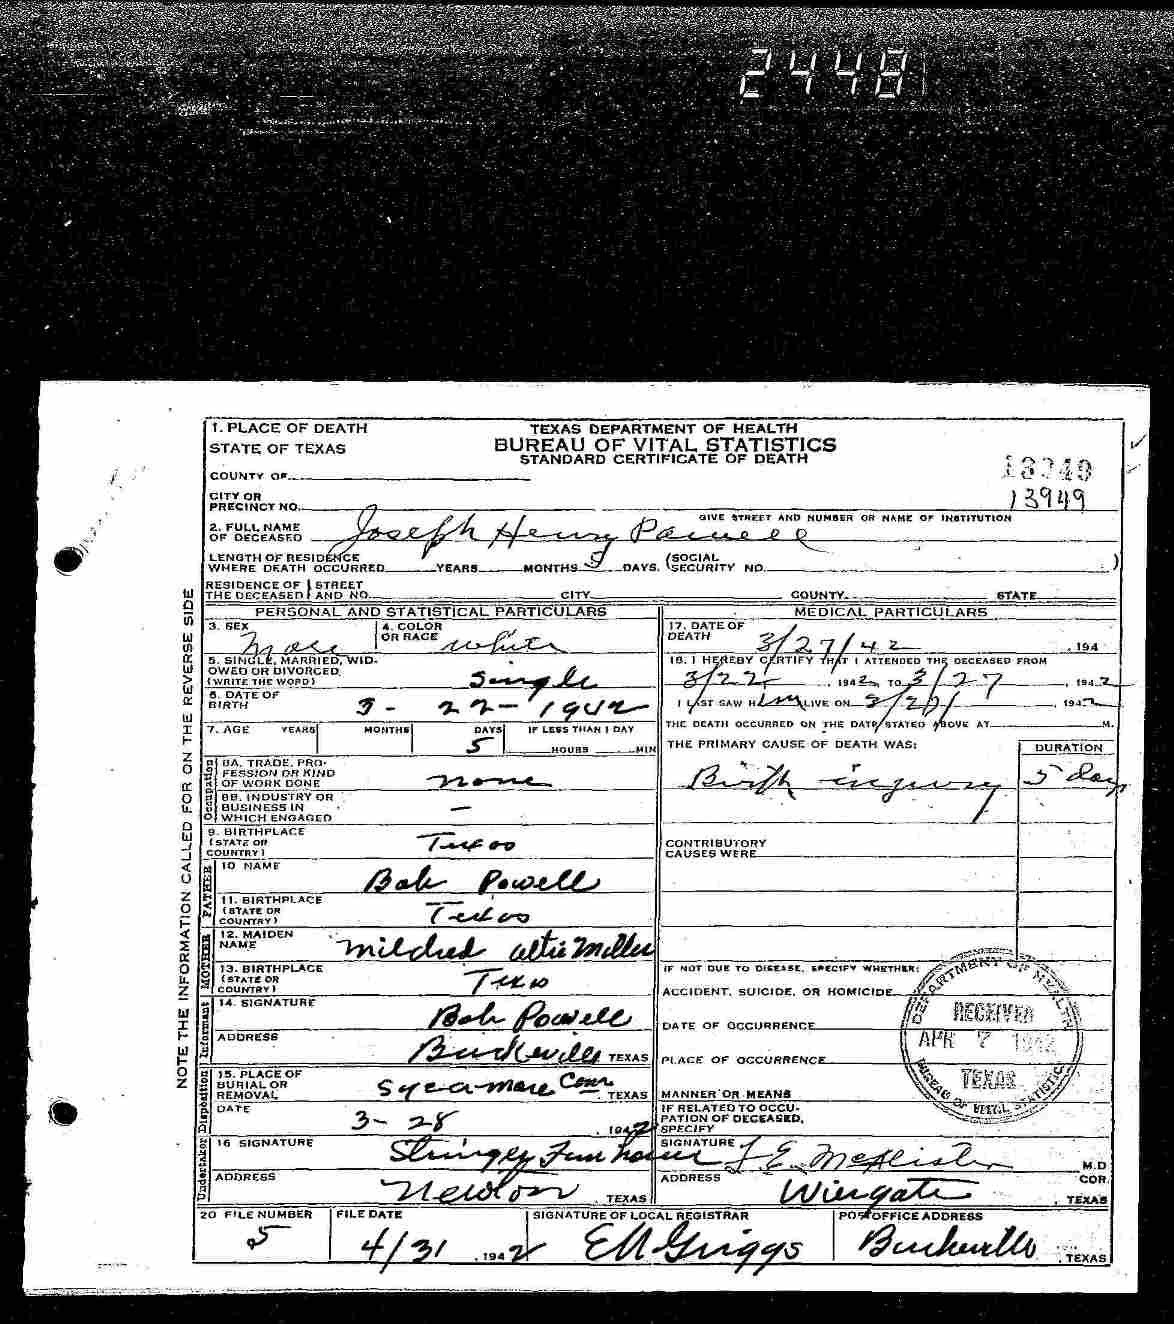 2448
1. PLACE OF DEATH
STATE OF TEXAS
TEXAS DEPARTMENT OF HEALTH
BUREAU OF VITAL STATISTICS
STANDARD CERTIFICATE OF DEATH
COUNTY OF
13949
CITY OR
PRECINCT NO.
13949
GIVE STREET AND NUMBER OR NAME OF INSTITUTION
2. FULL NAME
OF DECEASED Joseph Henry Powell
LENGTH OF RESIDENCE
WHERE DEATH OCCURRED YEARS MONTHS 5 DAYS. (SOCIAL
SECURITY NO. )
RESIDENCE OF STREET
THE DECEASED AND NO. CITY COUNTY STATE
NOTE THE INFORMATION CALLED FOR ON THE REVERSE SIDE
PERSONAL AND STATISTICAL PARTICULARS
3. SEX Male
4. COLOR
OR RACE white
5. SINGLE, MARRIED, WID-
OWED OR DIVORCED,
(WRITE THE WORD) Single
6. DATE OF
BIRTH 3-22-1942
7. AGE YEARS MONTHS DAYS 5 IF LESS THAN 1 DAY
HOURS MIN
Occupation
8A. TRADE, PRO-
FESSION OR KIND
OF WORK DONE none
8B. INDUSTRY OR
BUSINESS IN
WHICH ENGAGED –
9. BIRTHPLACE
(STATE OR
COUNTRY) Texas
FATHER
10 NAME Bob Powell
11. BIRTHPLACE
(STATE OR
COUNTRY) Texas
MOTHER
12. MAIDEN
NAME Mildred Miller
13. BIRTHPLACE
(STATE OR
COUNTRY) Texas
Informant
14. SIGNATURE Bob Powell
ADDRESS Burkeville TEXAS
Disposition
15. PLACE OF
BURIAL OR
REMOVAL Sycamore Cem. TEXAS
DATE 3-28 , 1942
Undertaker
16 SIGNATURE Stringer Fun home
ADDRESS Newton , TEXAS
MEDICAL PARTICULARS
17. DATE OF
DEATH 3/27/42 , 194
18. I HEREBY CERTIFY THAT I ATTENDED THE DECEASED FROM
3/22 , 1942 TO 3/27 , 1942
I LAST SAW H im ALIVE ON , 1942
THE DEATH OCCURRED ON THE DATE STATED ABOVE AT M.
THE PRIMARY CAUSE OF DEATH WAS: DURATION
Birth injury 5 days
CONTRIBUTORY
CAUSES WERE
IF NOT DUE TO DISEASE, SPECIFY WHETHER:
ACCIDENT, SUICIDE, OR HOMICIDE
DATE OF OCCURRENCE
PLACE OF OCCURRENCE
MANNER OR MEANS
IF RELATED TO OCCU-
PATION OF DECEASED,
SPECIFY
SIGNATURE J E McAlister M.D
COR.
ADDRESS Wiergate , TEXAS
DEPARTMENT OF HEALTH
RECEIVED
APR 7 1942
TEXAS
BUREAU OF VITAL STATISTICS
20 FILE NUMBER
5
FILE DATE
4/31 , 1942
SIGNATURE OF LOCAL REGISTRAR
Griggs
POST OFFICE ADDRESS
Burkeville , TEXAS